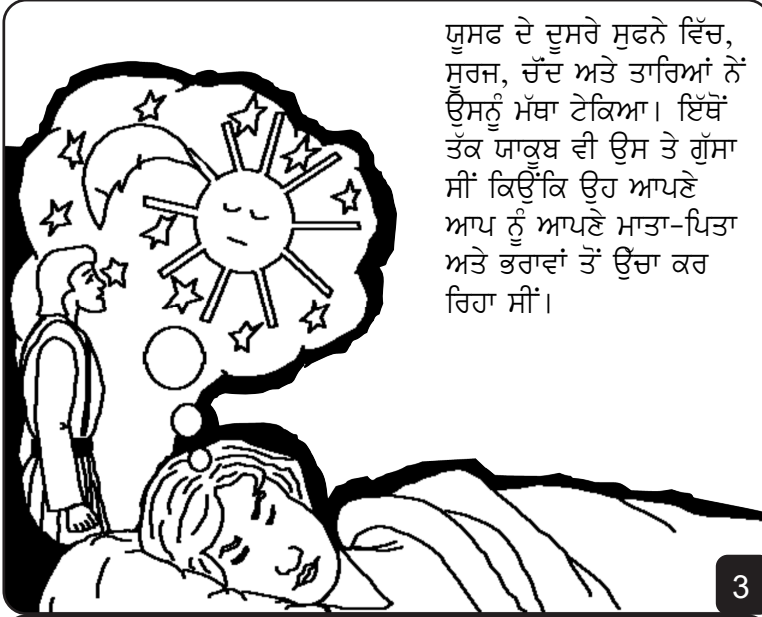 ਯੂਸਫ ਦੇ ਦੂਸਰੇ ਸੁਫਨੇ ਵਿੱਚ,
ਸੂਰਜ, ਚੱਂਦ ਅਤੇ ਤਾਰਿਆਂ ਨੇਂ
ਉਸਨੂੰ ਮੱਥਾ ਟੇਕਿਆ। ਇੱਥੋਂ
ਤੱਕ ਯਾਕੂਬ ਵੀ ਉਸ ਤੇ ਗੁੱਸਾ
ਸੀਂ ਕਿਉਂਕਿ ਉਹ ਆਪਣੇ
ਆਪ ਨੂੰ ਆਪਣੇ ਮਾਤਾ-ਪਿਤਾ
ਅਤੇ ਭਰਾਵਾਂ ਤੋਂ ਉੱਚਾ ਕਰ
ਰਿਹਾ ਸੀਂ।
3